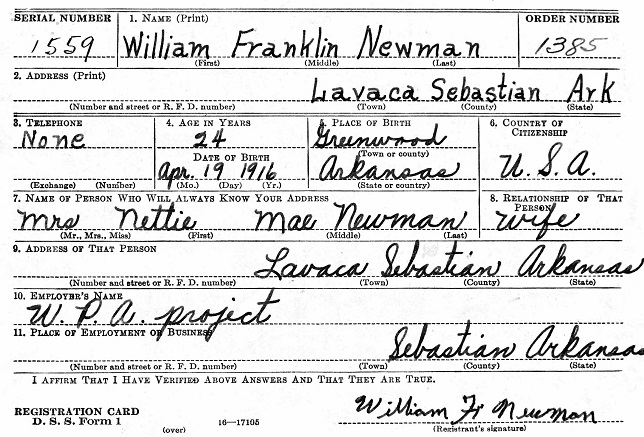 SERIAL NUMBER 1. NAME (Print) ORDER NUMBER
1559 William Franklin Newman 1385
(First) (Middle) (Last)
2. ADDRESS (Print)
Lavaca Sebastian Ark
(Number and street or R. F. D. number) (Town) (County) (State)
3. TELEPHONE 4. AGE IN YEARS 5. PLACE OF BIRTH 6. COUNTRY OF CITIZENSHIP
None 24 Greenwood
(Town or county)
DATE OF BIRTH U. S. A.
Apr. 19 1916 Arkansas
(Exchange) (Number) (Mo.) (Day) (Yr.) (State or country)
7. NAME OF PERSON WHO WILL ALWAYS KNOW YOUR ADDRESS 8. RELATIONSHIP OF THAT PERSON
Mrs Nettie Mae Newman wife
(Mr., Mrs., Miss) (First) (Middle) (Last)
9. ADDRESS OF THAT PERSON
Lavaca Sebastian Arkansas
(Number and street or R. F. D. number) (Town) (County) (State)
10. EMPLOYER'S NAME
W. P. A. project
11. PLACE OF EMPLOYMENT OR BUSINESS
Sebastian Arkansas
(Number and street or R. F. D. number) (Town) (County) (State)
I AFFIRM THAT I HAVE VERIFIED ABOVE ANSWERS AND THAT THEY ARE TRUE.
REGISTRATION CARD
D. S. S. Form 1 16—17105 William Fr Newman
(over) (Registrant's signature)